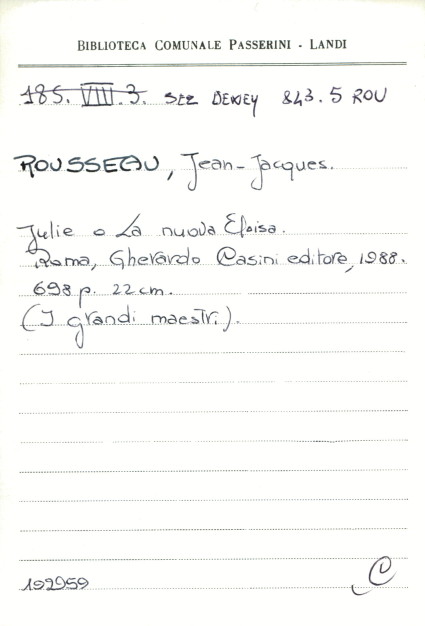 BIBLIOTECA COMUNALE PASSERINI - LANDI
185. VIII. 3. SEZ DEWEY 843.5 ROU
ROUSSEAU, Jean-Jacques.
Julie o La nuova Eloisa.
Roma, Gherardo Casini editore, 1988.
698 p. 22 cm.
(I grandi maestri).
192959
C